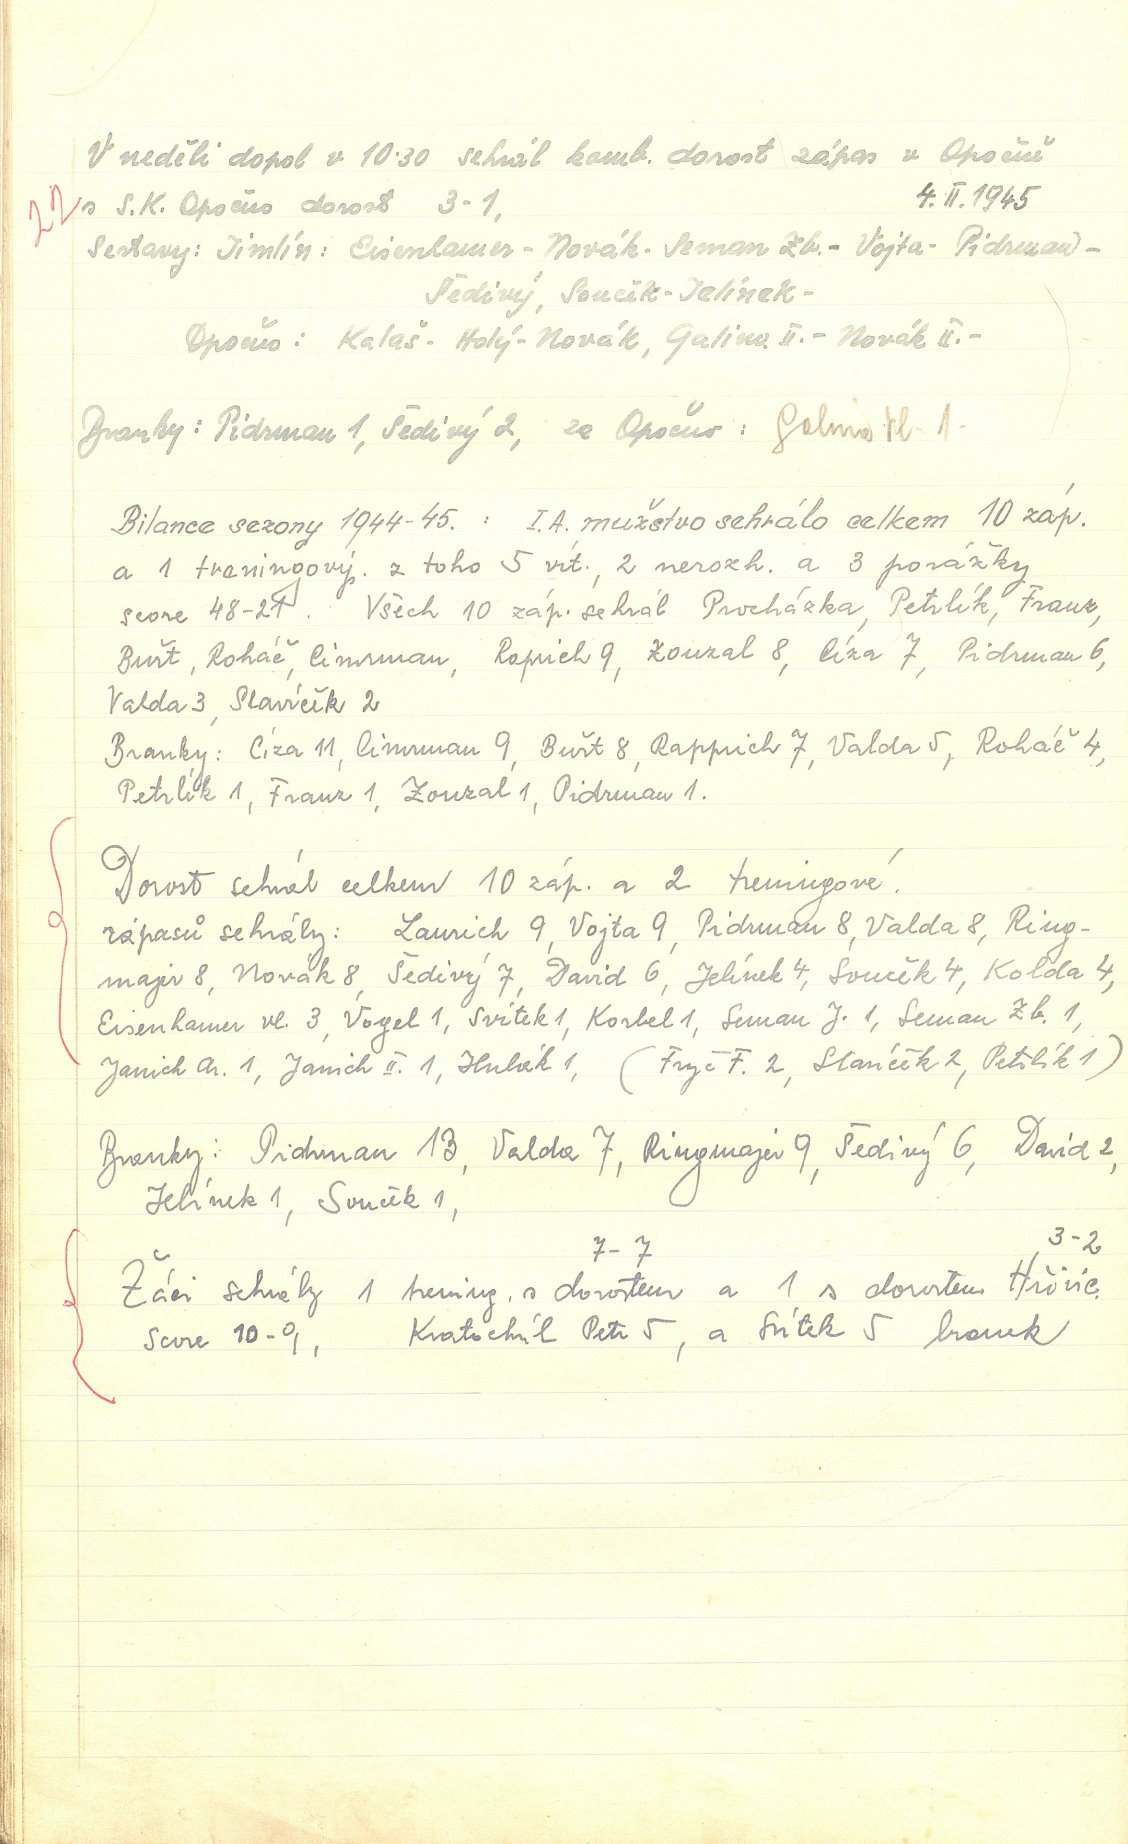 V neděli dopol v 10·30 sehrál komb. dorost zápas v Opočně
22 s S.K. Opočno dorost 3-1, 4.II.1945
Sestavy: Jimlín: Eisenhamer - Novák - Seman Zb. - Vojta - Pidrman -
Šedivý, Souček - Jelínek -
Opočno: Kalaš - Holý - Novák, Galina II. - Novák II. -
Branky: Pidrman 1, Šedivý 2, za Opočno: Galina 1
Bilance sezony 1944-45. : I.A. mužstvo sehrálo celkem 10 záp.
a 1 treningový. z toho 5 vít., 2 nerozh. a 3 porážky
score 48-21. Všech 10 záp. sehrál Procházka, Petrlík, Franz,
Buřt, Roháč, Cimrman, Rapich 9, Zouzal 8, Cíza 7, Pidrman 6,
Valda 3, Slavíček 2
Branky: Cíza 11, Cimrman 9, Buřt 8, Rappich 7, Valda 5, Roháč 4,
Petrlík 1, Franz 1, Zouzal 1, Pidrman 1.
Dorost sehrál celkem 10 záp. a 2 treningové.
zápasů sehrály: Laurich 9, Vojta 9, Pidrman 8, Valda 8, Ring-
majer 8, Novák 8, Šedivý 7, David 6, Jelínek 4, Souček 4, Kolda 4,
Eisenhamer vl. 3, Vogel 1, Svítek 1, Korbel 1, Seman J. 1, Seman Zb. 1,
Janich Ar. 1, Janich II. 1, Hubák 1, (Fryč F. 2, Slavíček 2, Petrlík 1)
Branky: Pidrman 13, Valda 7, Ringmajer 9, Šedivý 6, David 2,
Jelínek 1, Souček 1,
7-7 3-2
Žáci sehrály 1 trening. s dorostem a 1 s dorostem Hřivic.
Score 10-9, Kratochvíl Petr 5, a Svítek 5 branek